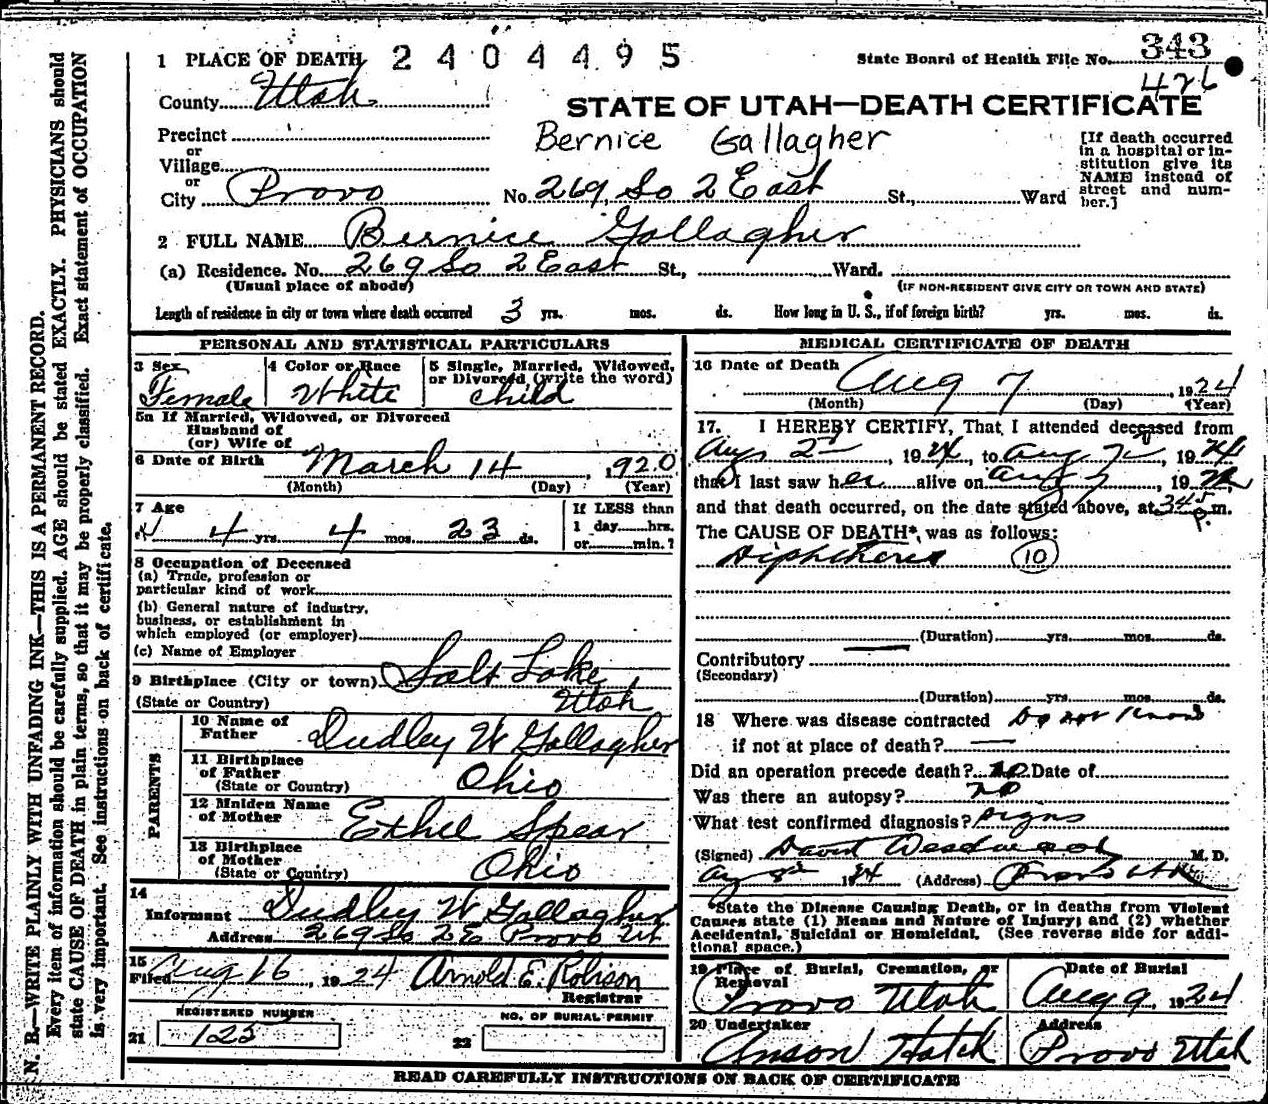 343
1 PLACE OF DEATH 2404495 State Board of Health File No.
426
County Utah
STATE OF UTAH—DEATH CERTIFICATE
Precinct
or
Village
or
City Provo
Bernice Gallagher
No. 269 So 2 East St., Ward
[If death occurred
in a hospital or in-
stitution give its
NAME instead of
street and num-
ber.]
2 FULL NAME Bernice Gallagher
(a) Residence. No. 269 So 2 East St., Ward.
(Usual place of abode) (IF NON-RESIDENT GIVE CITY OR TOWN AND STATE)
Length of residence in city or town where death occurred 3 yrs. mos. ds. How long in U. S., if of foreign birth? yrs. mos. ds.
PERSONAL AND STATISTICAL PARTICULARS
3 Sex
Female
4 Color or Race
White
5 Single, Married, Widowed,
or Divorced (write the word)
child
5a If Married, Widowed, or Divorced
Husband of
(or) Wife of
6 Date of Birth March 14, 1920
(Month) (Day) (Year)
7 Age
4 yrs. 4 mos. 23 ds.
If LESS than
1 day hrs.
or min.?
8 Occupation of Deceased
(a) Trade, profession or
particular kind of work
(b) General nature of industry,
business, or establishment in
which employed (or employer)
(c) Name of Employer
9 Birthplace (City or town) Salt Lake
(State or Country) Utah
PARENTS
10 Name of
Father Dudley W Gallagher
11 Birthplace
of Father Ohio
(State or Country)
12 Maiden Name
of Mother Ethel Spear
13 Birthplace
of Mother Ohio
(State or Country)
14
Informant Dudley W Gallagher
Address 269 So 2 E Provo Ut
15
Filed Aug 16, 1924 Arnold E. Robison
Registrar
REGISTERED NUMBER
21 125
NO. OF BURIAL PERMIT
22
MEDICAL CERTIFICATE OF DEATH
16 Date of Death Aug 7, 1924
(Month) (Day) (Year)
17. I HEREBY CERTIFY, That I attended deceased from
Aug 2, 1924, to Aug 7, 1924
that I last saw her alive on Aug 7, 1924
and that death occurred, on the date stated above, at 345 P. m.
The CAUSE OF DEATH*, was as follows:
Diphtheria 10
(Duration) yrs. mos. ds.
Contributory
(Secondary)
(Duration) yrs. mos. ds.
18 Where was disease contracted Do not Know
if not at place of death? —
Did an operation precede death? no Date of
Was there an autopsy? no
What test confirmed diagnosis? signs
(Signed) David Westwood M. D.
Aug 8 1924 (Address) Provo Utah
*State the Disease Causing Death, or in deaths from Violent
Causes state (1) Means and Nature of Injury; and (2) whether
Accidental, Suicidal or Homicidal. (See reverse side for addi-
tional space.)
19 Place of Burial, Cremation, or
Removal
Provo Utah
Date of Burial
Aug 9, 1924
20 Undertaker
Anson Hatch
Address
Provo Utah
READ CAREFULLY INSTRUCTIONS ON BACK OF CERTIFICATE
N. B.—WRITE PLAINLY WITH UNFADING INK—THIS IS A PERMANENT RECORD.
Every item of information should be carefully supplied. AGE should be stated EXACTLY. PHYSICIANS should
state CAUSE OF DEATH in plain terms, so that it may be properly classified. Exact statement of OCCUPATION
is very important. See instructions on back of certificate.